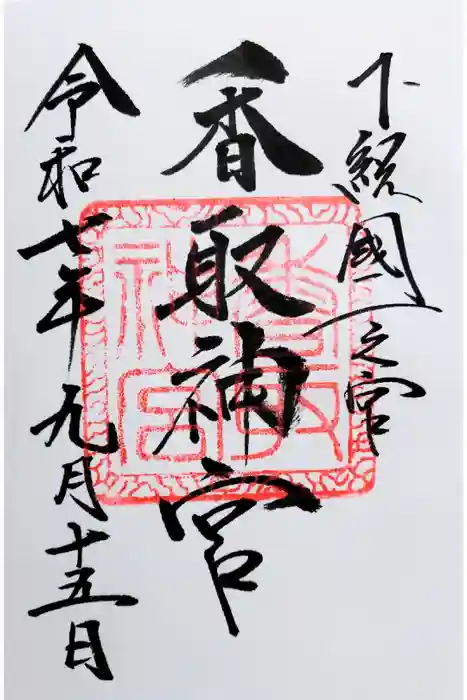 下総國一之宮
香取神宮
香取神宮
令和七年九月十五日